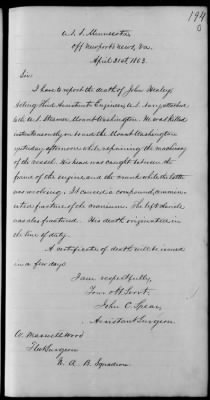 194
U.S. Minnesota
Off Newport News, Va.
April 21st, 1863.
Sir:
I have to report the death of John Healey,
Acting Third Assistant Engineer, U.S. Navy, attached
to the U.S. Steamer Mount Washington. He was killed
instantaneously on board the Mount Washington
yesterday afternoon while repairing the machinery
of the vessel. His head was caught between the
frame of the engine and the crank while the latter
was revolving. It caused a compound, comminu-
ted fracture of the cranium. The left clavicle
was also fractured. His death originated in
the line of duty.
A certificate of death will be issued
in a few days.
I am respectfully,
Your obt Servt.
John C. Spear,
Assistant Surgeon.
W. Maxwell Wood
Fleet Surgeon
N. A. B. Squadron.